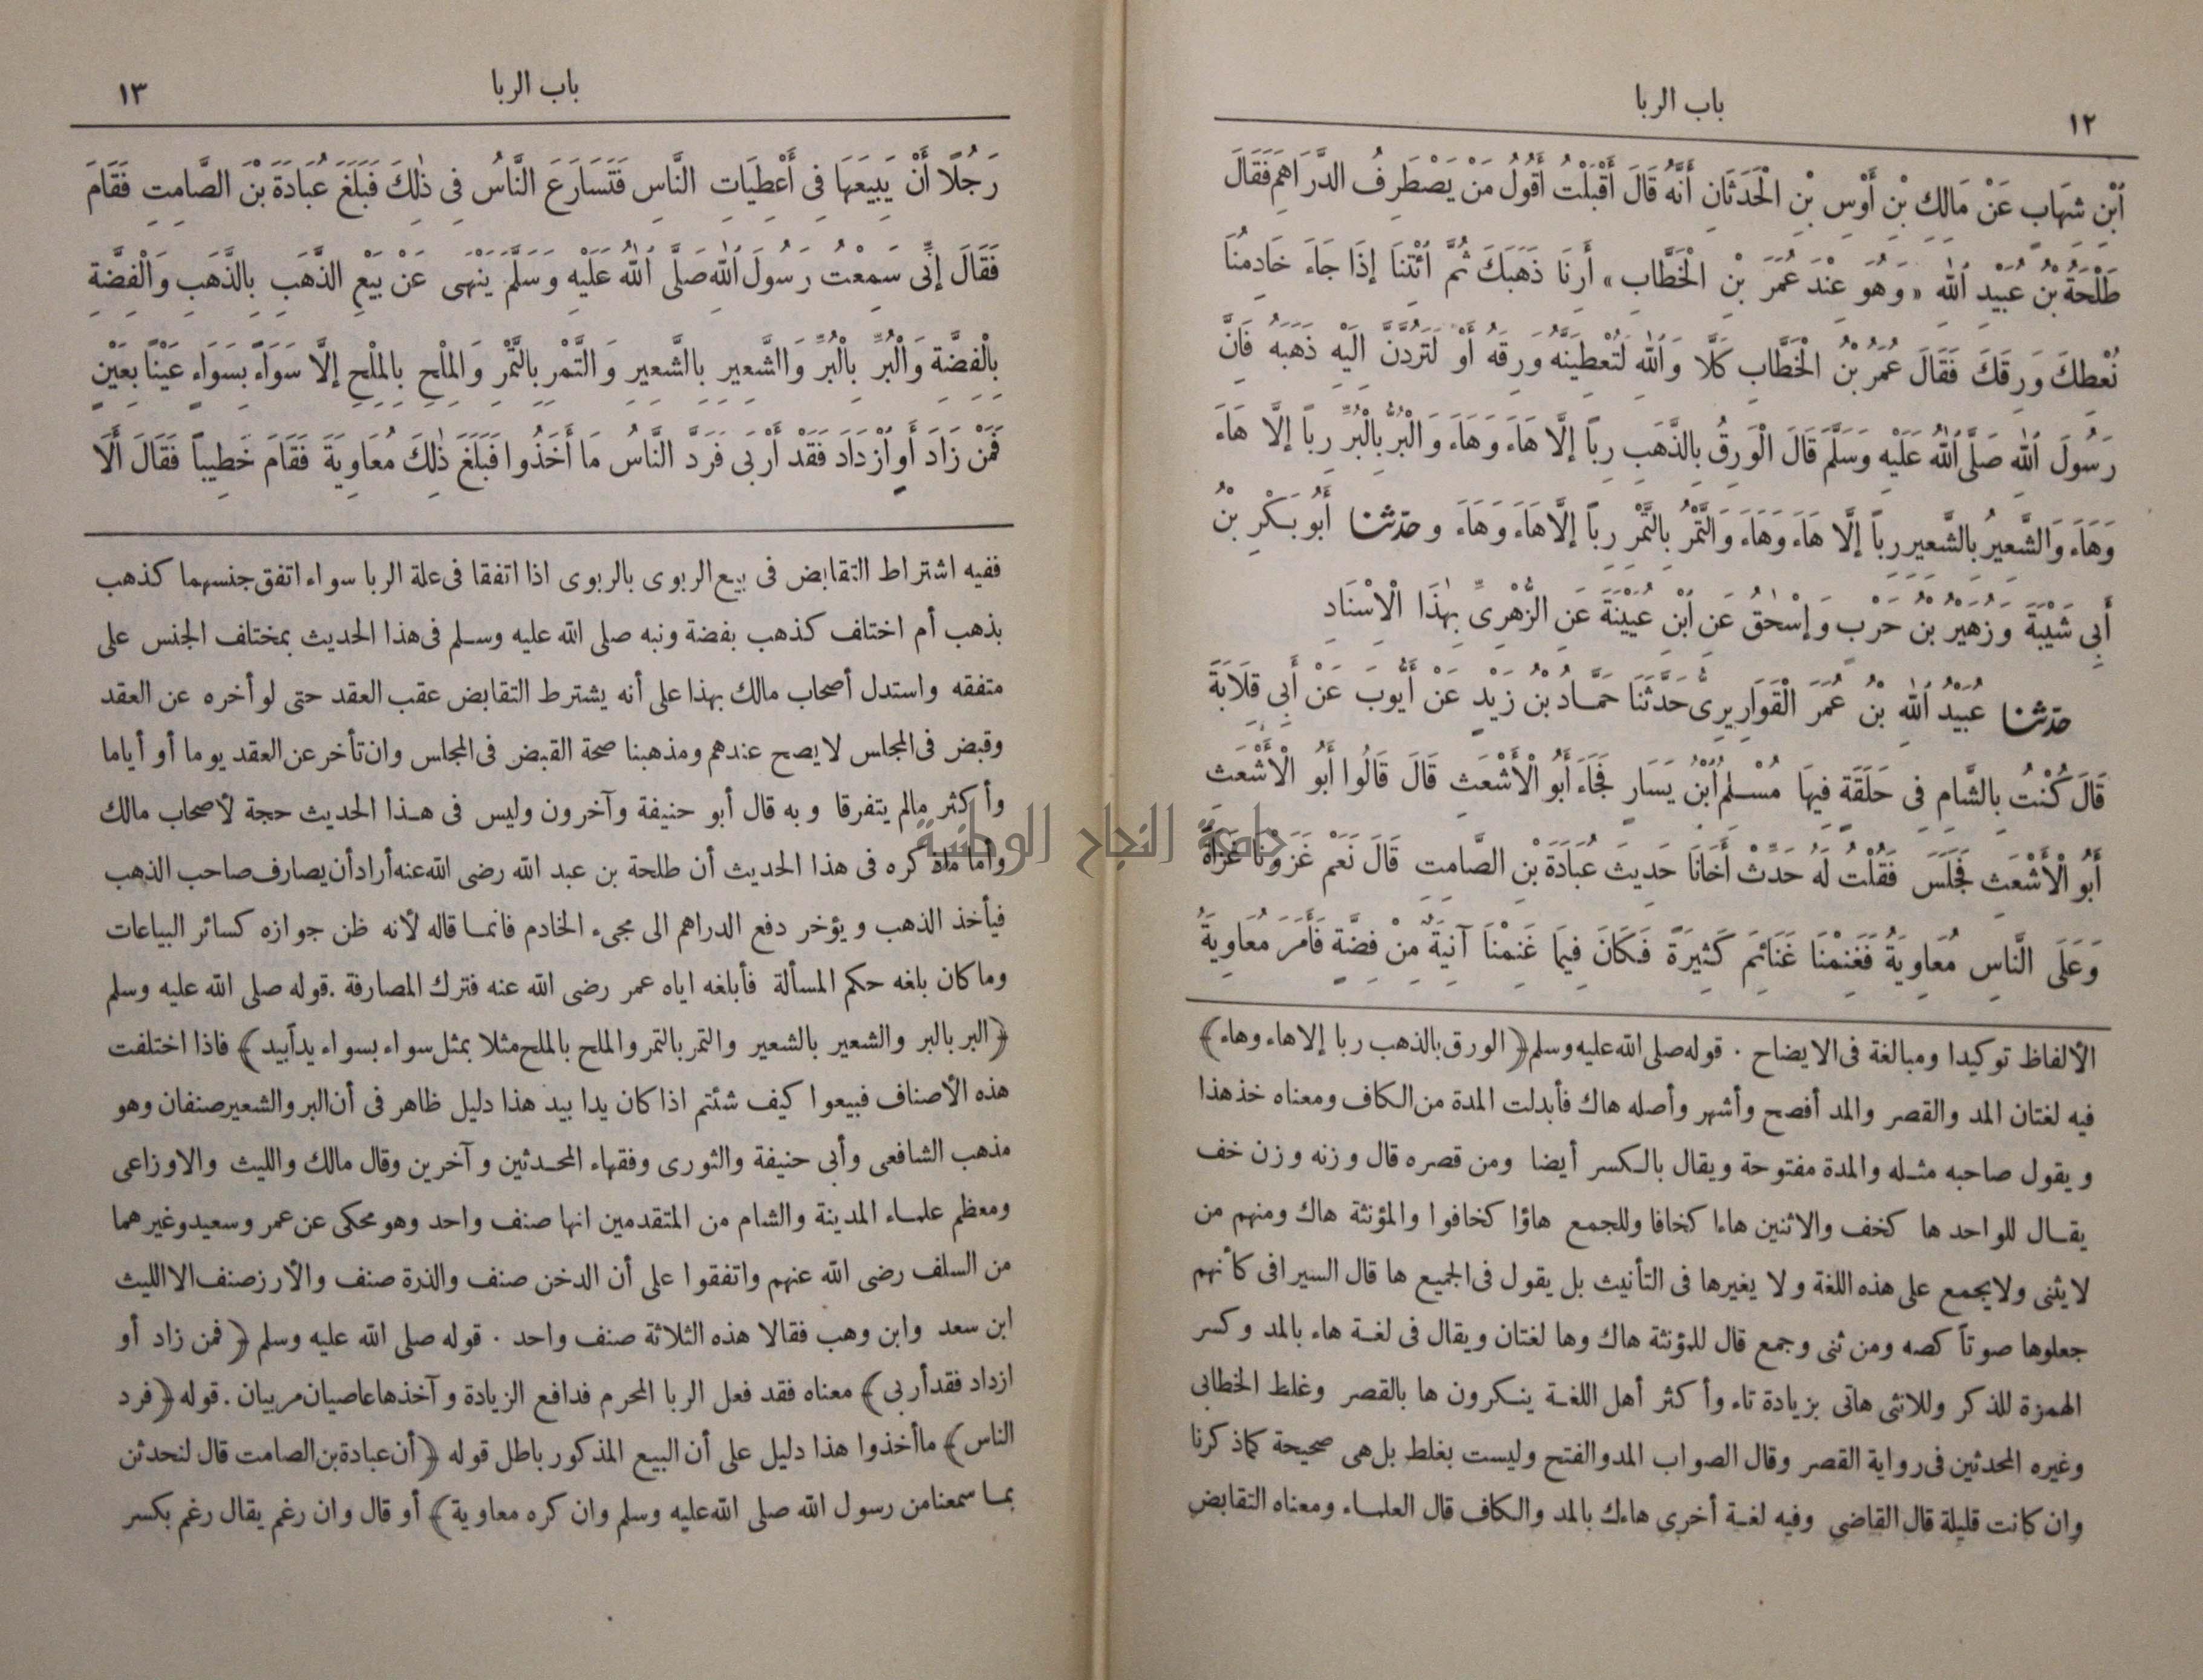 ١٢
باب الربا
ٱبْنِ شِهَابٍ عَنْ مَالِكِ بْنِ أَوْسِ بْنِ الْحَدَثَانِ أَنَّهُ قَالَ أَقْبَلْتُ أَقُولُ مَنْ يَصْطَرِفُ الدَّرَاهِمَ فَقَالَ
طَلْحَةُ بْنُ عُبَيْدِ ٱللّٰهِ « وَهُوَ عِنْدَ عُمَرَ بْنِ الْخَطَّابِ » أَرِنَا ذَهَبَكَ ثُمَّ ٱئْتِنَا إِذَا جَاءَ خَادِمُنَا
نُعْطِكَ وَرِقَكَ فَقَالَ عُمَرُ بْنُ الْخَطَّابِ كَلَّا وَٱللّٰهِ لَتُعْطِيَنَّهُ وَرِقَهُ أَوْ لَتَرُدَّنَّ إِلَيْهِ ذَهَبَهُ فَإِنَّ
رَسُولَ ٱللّٰهِ صَلَّى ٱللّٰهُ عَلَيْهِ وَسَلَّمَ قَالَ الْوَرِقُ بِالذَّهَبِ رِبًا إِلَّا هَاءَ وَهَاءَ وَالْبُرُّ بِالْبُرِّ رِبًا إِلَّا هَاءَ
وَهَاءَ وَالشَّعِيرُ بِالشَّعِيرِ رِبًا إِلَّا هَاءَ وَهَاءَ وَالتَّمْرُ بِالتَّمْرِ رِبًا إِلَّا هَاءَ وَهَاءَ و حدثنا أَبُو بَكْرِ بْنُ
أَبِي شَيْبَةَ وَزُهَيْرُ بْنُ حَرْبٍ وَإِسْحٰقُ عَنِ ٱبْنِ عُيَيْنَةَ عَنِ الزُّهْرِىِّ بِهٰذَا الْإِسْنَادِ
حدثنا عُبَيْدُ ٱللّٰهِ بْنُ عُمَرَ الْقَوَارِيرِىُّ حَدَّثَنَا حَمَّادُ بْنُ زَيْدٍ عَنْ أَيُّوبَ عَنْ أَبِي قِلَابَةَ
قَالَ كُنْتُ بِالشَّامِ فِى حَلَقَةٍ فِيهَا مُسْلِمُ ٱبْنُ يَسَارٍ فَجَاءَ أَبُو الْأَشْعَثِ قَالَ قَالُوا أَبُو الْأَشْعَثِ
أَبُو الْأَشْعَثِ فَجَلَسَ فَقُلْتُ لَهُ حَدِّثْ أَخَانَا حَدِيثَ عُبَادَةَ بْنِ الصَّامِتِ قَالَ نَعَمْ غَزَوْنَا غَزَاةً
وَعَلَى النَّاسِ مُعَاوِيَةُ فَغَنِمْنَا غَنَائِمَ كَثِيرَةً فَكَانَ فِيمَا غَنِمْنَا آنِيَةٌ مِنْ فِضَّةٍ فَأَمَرَ مُعَاوِيَةُ
الألفاظ توكيدا ومبالغة فى الايضاح . قوله صلى الله عليه وسلم ﴿ الورق بالذهب ربا إلا هاء وهاء ﴾
فيه لغتان المد والقصر والمد أفصح وأشهر وأصله هاك فأبدلت المدة من الكاف ومعناه خذ هذا
ويقول صاحبه مثله والمدة مفتوحة ويقال بالكسر أيضا ومن قصره قال وزنه وزن خف
يقال للواحد ها كخف والاثنين هاءا كخافا وللجمع هاؤا كخافوا والمؤنثة هاك ومنهم من
لا يثنى ولا يجمع على هذه اللغة ولا يغيرها فى التأنيث بل يقول فى الجميع ها قال السيرافى كأنهم
جعلوها صوتا كصه ومن ثنى وجمع قال للمؤنثة هاك وها لغتان ويقال فى لغة هاء بالمد وكسر
الهمزة للمذكر وللانثى هاتى بزيادة تاء وأكثر أهل اللغة ينكرون ها بالقصر وغلط الخطابى
وغيره المحدثين فى رواية القصر وقال الصواب المد والفتح وليست بغلط بل هى صحيحة كما ذكرنا
وان كانت قليلة قال القاضى وفيه لغة أخرى هاءك بالمد والكاف قال العلماء ومعناه التقابض
باب الربا
١٣
رَجُلًا أَنْ يَبِيعَهَا فِى أَعْطِيَاتِ النَّاسِ فَتَسَارَعَ النَّاسُ فِى ذٰلِكَ فَبَلَغَ عُبَادَةَ بْنَ الصَّامِتِ فَقَامَ
فَقَالَ إِنِّى سَمِعْتُ رَسُولَ ٱللّٰهِ صَلَّى ٱللّٰهُ عَلَيْهِ وَسَلَّمَ يَنْهَى عَنْ بَيْعِ الذَّهَبِ بِالذَّهَبِ وَالْفِضَّةِ
بِالْفِضَّةِ وَالْبُرِّ بِالْبُرِّ وَالشَّعِيرِ بِالشَّعِيرِ وَالتَّمْرِ بِالتَّمْرِ وَالْمِلْحِ بِالْمِلْحِ إِلَّا سَوَاءً بِسَوَاءٍ عَيْنًا بِعَيْنٍ
فَمَنْ زَادَ أَوِ ٱزْدَادَ فَقَدْ أَرْبَى فَرَدَّ النَّاسُ مَا أَخَذُوا فَبَلَغَ ذٰلِكَ مُعَاوِيَةَ فَقَامَ خَطِيبًا فَقَالَ أَلَا
ففيه اشتراط التقابض فى بيع الربوى بالربوى اذا اتفقا فى علة الربا سواء اتفق جنسهما كذهب
بذهب أم اختلف كذهب بفضة ونبه صلى الله عليه وسلم فى هذا الحديث بمختلف الجنس على
متفقه واستدل أصحاب مالك بهذا على أنه يشترط التقابض عقب العقد حتى لو أخره عن العقد
وقبض فى المجلس لا يصح عندهم ومذهبنا صحة القبض فى المجلس وان تأخر عن العقد يوما أو أياما
وأكثر مالم يتفرقا وبه قال أبو حنيفة وآخرون وليس فى هذا الحديث حجة لأصحاب مالك
وأما ماذكره فى هذا الحديث أن طلحة بن عبد الله رضى الله عنه أراد أن يصارف صاحب الذهب
فيأخذ الذهب ويؤخر دفع الدراهم الى مجىء الخادم فانما قاله لأنه ظن جوازه كسائر البياعات
وما كان بلغه حكم المسألة فأبلغه اياه عمر رضى الله عنه فترك المصارفة . قوله صلى الله عليه وسلم
﴿ البر بالبر والشعير بالشعير والتمر بالتمر والملح بالملح مثلا بمثل سواء بسواء يدا بيد ﴾ فاذا اختلفت
هذه الأصناف فبيعوا كيف شئتم اذا كان يدا بيد هذا دليل ظاهر فى أن البر والشعير صنفان وهو
مذهب الشافعى وأبى حنيفة والثورى وفقهاء المحدثين وآخرين وقال مالك والليث والاوزاعى
ومعظم علماء المدينة والشام من المتقدمين انها صنف واحد وهو محكى عن عمر وسعيد وغيرهما
من السلف رضى الله عنهم واتفقوا على أن الدخن صنف والذرة صنف والأرز صنف الا الليث
ابن سعد وابن وهب فقالا هذه الثلاثة صنف واحد . قوله صلى الله عليه وسلم ﴿ فمن زاد أو
ازداد فقد أربى ﴾ معناه فقد فعل الربا المحرم فدافع الزيادة وآخذها عاصيان مربيان . قوله ﴿ فرد
الناس ﴾ ما أخذوا هذا دليل على أن البيع المذكور باطل قوله ﴿ أن عبادة بن الصامت قال لنحدثن
بما سمعنا من رسول الله صلى الله عليه وسلم وان كره معاوية ﴾ أو قال وان رغم يقال رغم بكسر
جامعة النجاح الوطنية